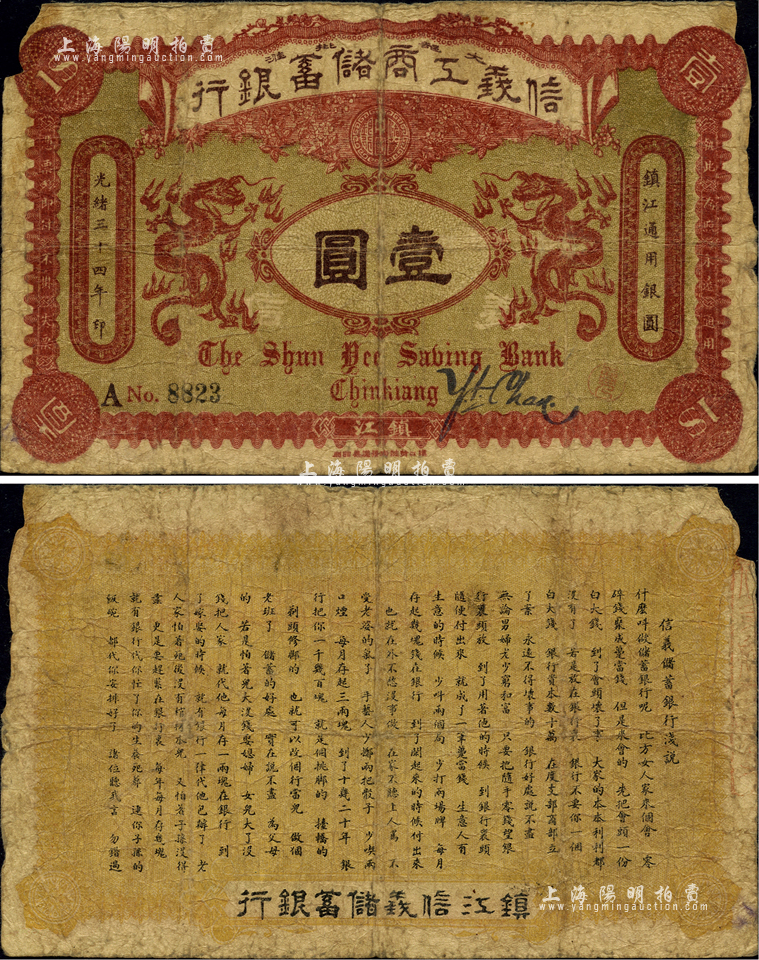 上海陽明拍賣
www.yangmingauction.com
大部批准
信義工商儲蓄銀行
1$
壹
鎮江通用銀圓
光緒三十四年印
壹圓
信義
The Shun Yee Saving Bank
Chinkiang
A No. 8823
Y. Chan
鎮江
壹
1$
上海陽明拍賣
www.yangmingauction.com
信義儲蓄銀行淺說
什麼呌做儲蓄銀行呢 比方女人家來個會 零
碎錢聚成躉當錢 但是聚會的 先把會頭一份
白火錢 到了會頭壞了事 大家的本本利利都
沒有了 若是放在銀行裏 銀行不要你一個
白大錢 銀行資本數十萬 在度支部商部立
了案 永遠不得壞事的 銀行好處說不盡
無論男婦老少窮和富 只要把隨手零錢望銀
行裏頭放 到了用著他的時候 到銀行裏頭
隨便付出來 就成了一筆躉當錢 生意人有
生意的時候 少呌兩個局 少打兩場牌 每月
存起幾塊錢在銀行 到了閒起來的時候付出來
也就在外不愁沒事做 在家不聽上人罵 不
受老爸的氣了 手藝人少擲兩把骰子 少喫兩
口煙 每月存起三兩塊 到了十幾二十年 銀
行把你一千幾百塊 就是個挑腳的 擡轎的
剃頭修腳的 也就可以改個行當兒 做個
老班了 儲蓄的好處 實在說不盡 為父母
的 若是怕着兒大沒錢娶媳婦 女兒大了沒
錢把人家 就代他每月存一兩塊在銀行 到
了嫁娶的時候 就有銀行一律代他包辦了 老
人家怕着死後沒有棺材本兒 又怕着子孫沒得
靠 更是要趕緊在銀行裏 每年每月存幾塊
就有銀行代你担了你的生養死葬 連你子孫的
飯碗 都代你安排好了 諸位聽我言 勿錯過
鎮江信義儲蓄銀行
上海陽明拍賣
www.yangmingauction.com